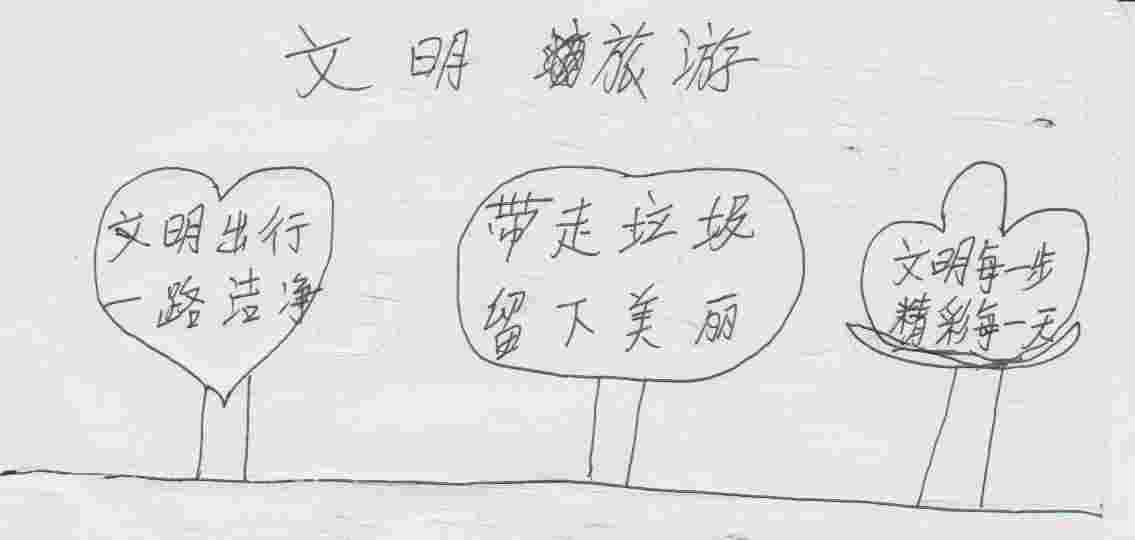 文明旅游
文明出行
一路洁净
带走垃圾
留下美丽
文明每一步
精彩每一天